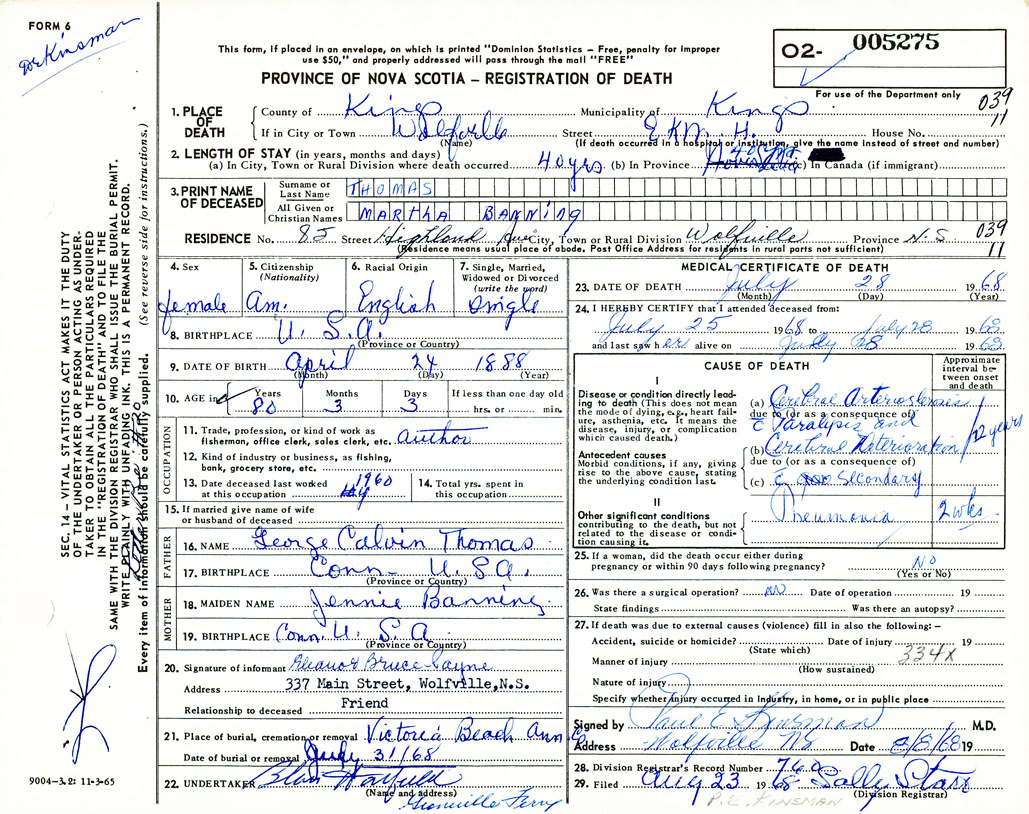 FORM 6
Dr Kinsman
This form, if placed in an envelope, on which is printed "Dominion Statistics – Free, penalty for improper
use $50," and properly addressed will pass through the mail "FREE"
PROVINCE OF NOVA SCOTIA – REGISTRATION OF DEATH
02- 005275
For use of the Department only
039
11
1. PLACE OF DEATH
County of Kings Municipality of Kings
If in City or Town Wolfville Street E K M. H. House No.
(Name) (If death occurred in a hospital or institution, give the name instead of street and number)
2. LENGTH OF STAY (in years, months and days)
(a) In City, Town or Rural Division where death occurred 40 yrs (b) In Province 40 yrs. (c) In Canada (if immigrant)
3. PRINT NAME OF DECEASED
Surname or Last Name THOMAS
All Given or Christian Names MARTHA BANNING
RESIDENCE No. 85 Street Highland Ave City, Town or Rural Division Wolfville Province N.S
(Residence means usual place of abode. Post Office Address for residents in rural parts not sufficient)
039
11
4. Sex
female
5. Citizenship (Nationality)
Am.
6. Racial Origin
English
7. Single, Married, Widowed or Divorced (write the word)
Single
8. BIRTHPLACE U. S. A.
(Province or Country)
9. DATE OF BIRTH April 24 1888
(Month) (Day) (Year)
10. AGE in Years Months Days If less than one day old
80 3 3 hrs. or min.
OCCUPATION
11. Trade, profession, or kind of work as
fisherman, office clerk, sales clerk, etc. author
12. Kind of industry or business, as fishing,
bank, grocery store, etc.
13. Date deceased last worked
at this occupation 1960
14. Total yrs. spent in
this occupation
15. If married give name of wife
or husband of deceased
FATHER
16. NAME George Calvin Thomas
17. BIRTHPLACE Conn U.S.A.
(Province or Country)
MOTHER
18. MAIDEN NAME Jennie Banning
19. BIRTHPLACE Conn. U. S. A.
(Province or Country)
20. Signature of informant Eleanor Bruce Payne
Address 337 Main Street, Wolfville,N.S.
Relationship to deceased Friend
21. Place of burial, cremation or removal Victoria Beach Ann Co
Date of burial or removal July 31/68
22. UNDERTAKER
(Name and address)
Granville Ferry
MEDICAL CERTIFICATE OF DEATH
23. DATE OF DEATH July 28 1968
(Month) (Day) (Year)
24. I HEREBY CERTIFY that I attended deceased from:
July 25 1968 to July 28 1968
and last saw her alive on July 28 1968
CAUSE OF DEATH
Approximate interval between onset and death
I
Disease or condition directly leading to death (This does not mean
the mode of dying, e.g., heart failure, asthenia, etc. It means the
disease, injury, or complication
which caused death.)
(a) Cerebral Arteriosclerosis
due to (or as a consequence of)
c Paralysis and
Antecedent causes
Morbid conditions, if any, giving
rise to the above cause, stating
the underlying condition last.
(b) Cerebral Deterioration
12 years
due to (or as a consequence of)
(c) c Secondary
II
Other significant conditions
contributing to the death, but not
related to the disease or condition causing it.
Pneumonia 2 wks.
25. If a woman, did the death occur either during
pregnancy or within 90 days following pregnancy? NO
(Yes or No)
26. Was there a surgical operation? no Date of operation 19
State findings Was there an autopsy?
27. If death was due to external causes (violence) fill in also the following:–
Accident, suicide or homicide? Date of injury 19
(State which)
334X
Manner of injury
(How sustained)
Nature of injury
Specify whether injury occurred in Industry, in home, or in public place
Signed by Paul E. Kinsman M.D.
Address Wolfville NS Date 8/8/68 19
28. Division Registrar's Record Number 760
29. Filed Aug 23 1968 Sally Starr
(Division Registrar)
P.E. KINSMAN
SEC. 14 – VITAL STATISTICS ACT MAKES IT THE DUTY
OF THE UNDERTAKER OR PERSON ACTING AS UNDER-
TAKER TO OBTAIN ALL THE PARTICULARS REQUIRED
IN THE "REGISTRATION OF DEATH" AND TO FILE THE
SAME WITH THE DIVISION REGISTRAR WHO SHALL ISSUE THE BURIAL PERMIT.
WRITE PLAINLY WITH UNFADING INK. THIS IS A PERMANENT RECORD.
Every item of information should be carefully supplied. (See reverse side for instructions.)
9004-3.2: 11-3-65